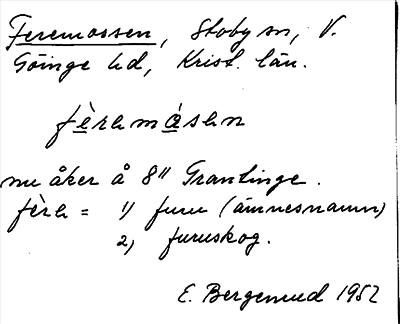 Feremossen, Stoby sn, V.
Göinge hd, Krist. län.
fèrɘmɑ́sɘn
nu åker å 8¹¹ Grantinge.
fèrɘ = 1) furu (ämnesnamn)
2) furuskog.
E. Bergemud 1952